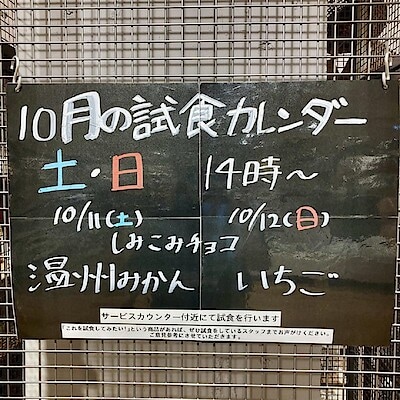 10月の試食カレンダー
土・日 14時～
10/11(土) 10/12(日)
しみこみチョコ
温州みかん いちご
サービスカウンター付近にて試食を行います
「これを試食してみたい！」という商品があれば、ぜひ試食をしているスタッフまでお声がけください。
ご意見参考にさせていただきます。